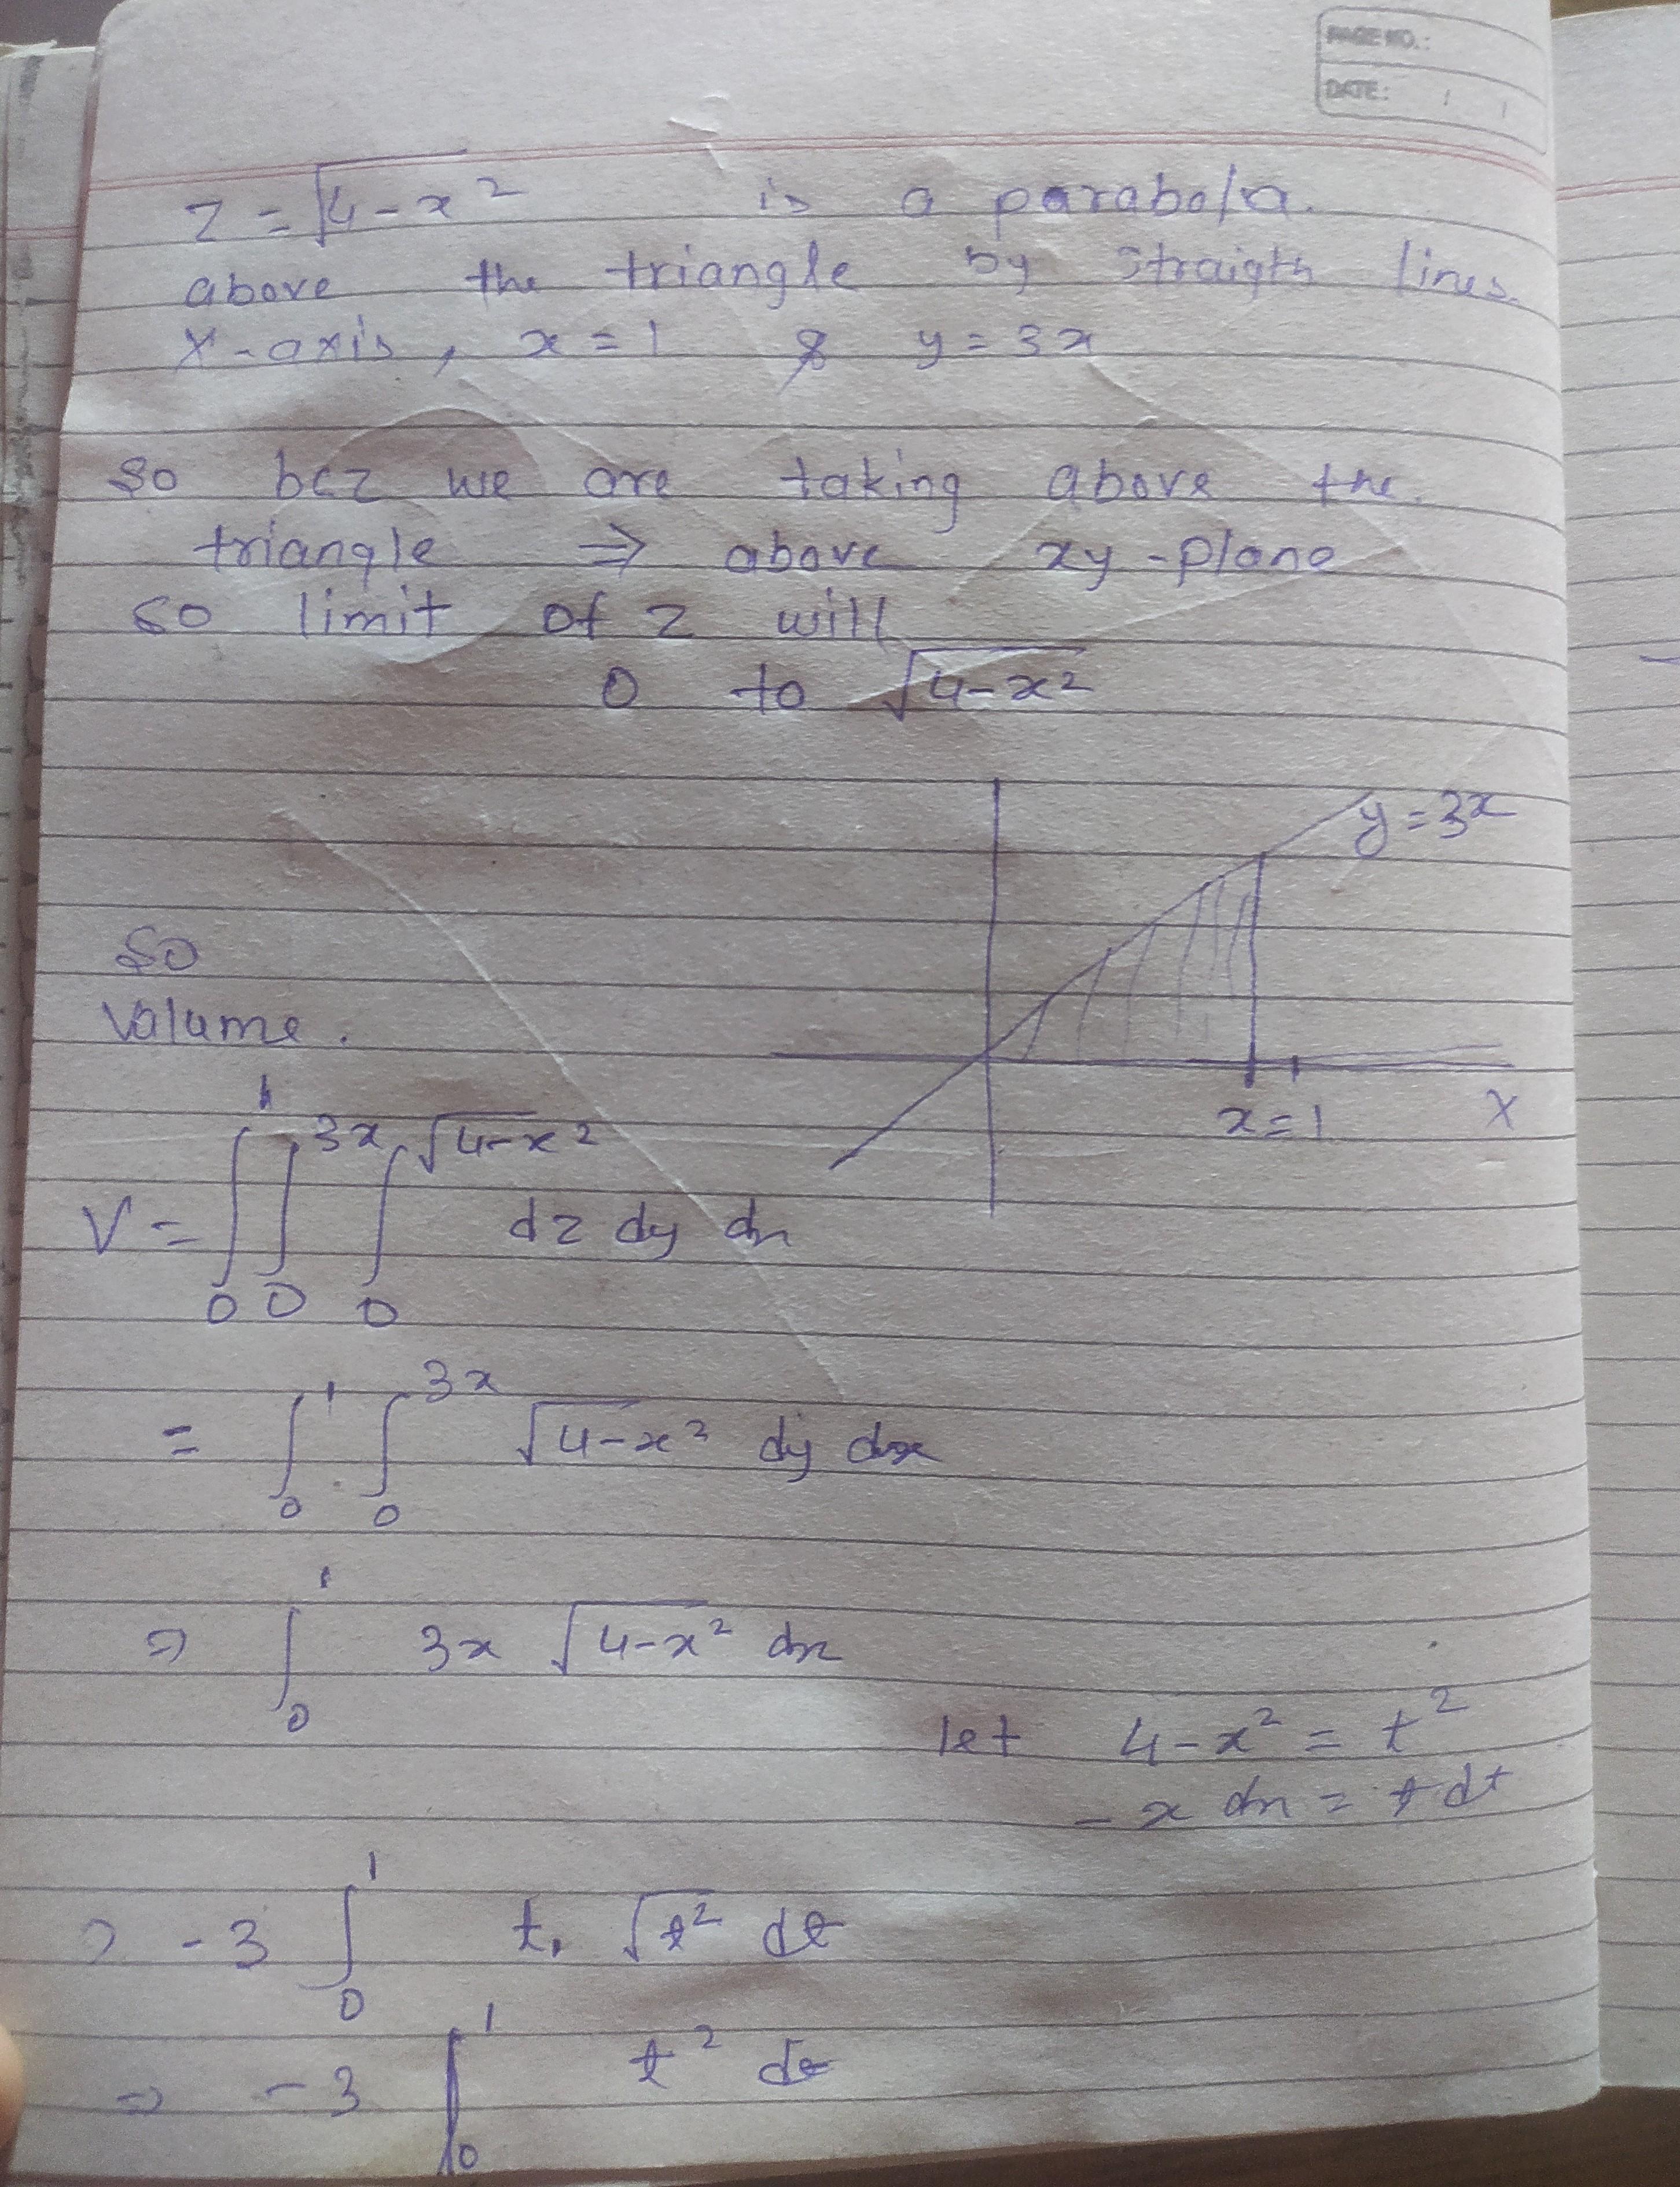 PAGE NO.:
DATE: / /
z = √4-x² is a parabola.
above the triangle by straigth lines.
X-axis, x = 1 & y = 3x
So bcz we are taking above the.
triangle ⇒ above xy-plane
so limit of z will
0 to √4-x²
y = 3x
So
Valume.
x = 1 X
V = ∫₀¹ ∫₀³ˣ ∫₀^√4-x² dz dy dx
= ∫₀¹ ∫₀³ˣ √4-x² dy dx
⇒ ∫₀¹ 3x √4-x² dx
let 4-x² = t²
-x dx = t dt
⇒ -3 ∫₀¹ t. √t² dt
⇒ -3 ∫₀¹ t² dt